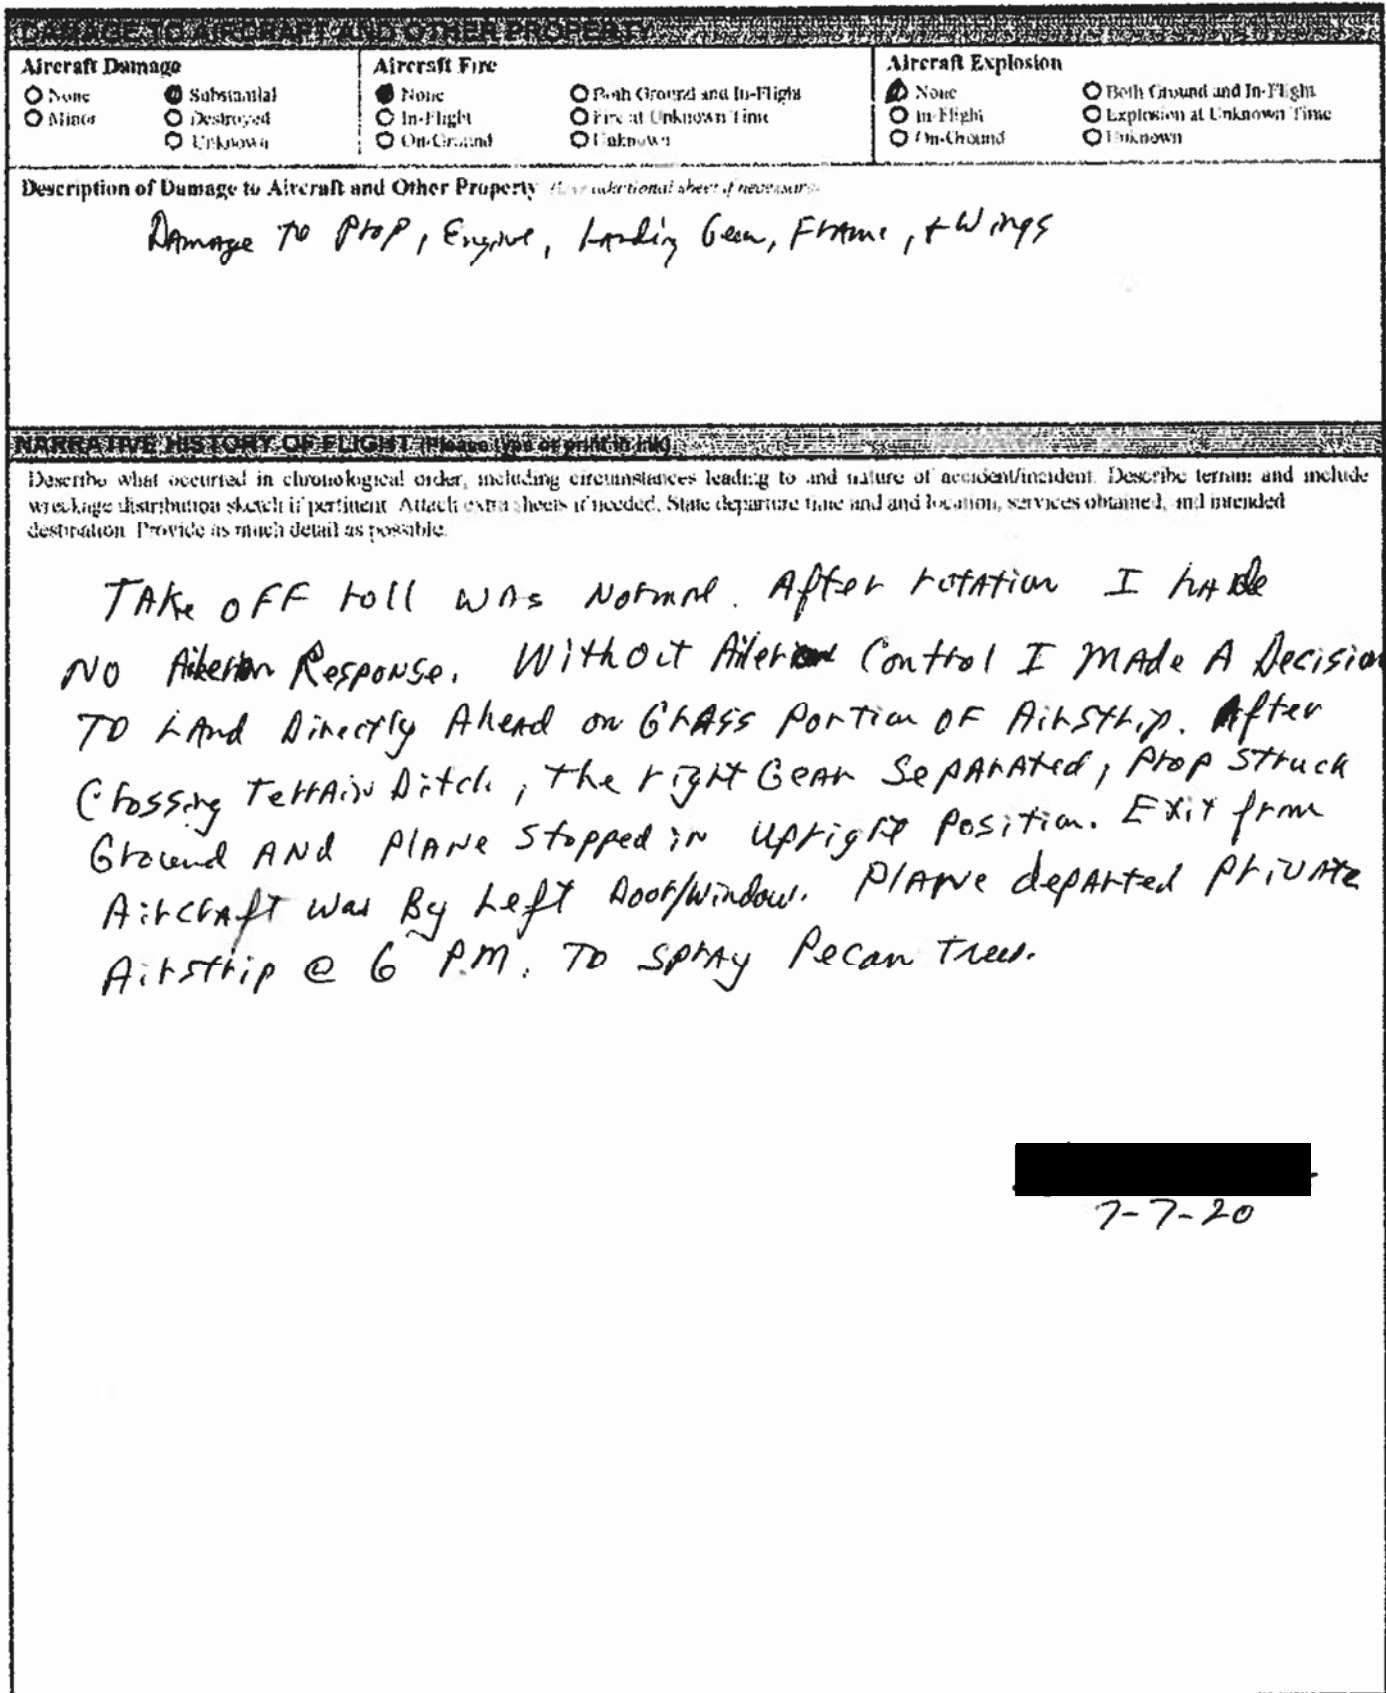 DAMAGE TO AIRCRAFT AND OTHER PROPERTY
Aircraft Damage
None
Minor
Substantial
Destroyed
Unknown
Aircraft Fire
None
In-Flight
On-Ground
Both Ground and In-Flight
Fire at Unknown Time
Unknown
Aircraft Explosion
None
In-Flight
On-Ground
Both Ground and In-Flight
Explosion at Unknown Time
Unknown
Description of Damage to Aircraft and Other Property (Use additional sheet if necessary)
Damage To Prop, Engine, Landing Gear, Frame, + Wings
NARRATIVE HISTORY OF FLIGHT (Please type or print in ink)
Describe what occurred in chronological order, including circumstances leading to and nature of accident/incident. Describe terrain and include
wreckage distribution sketch if pertinent. Attach extra sheets if needed. State departure time and and location, services obtained, and intended
destination. Provide as much detail as possible.
Take off roll was Normal. After rotation I
No Aileron Response. Without Aileron Control I made A Decision
To Land Directly Ahead on Grass portion of Airstrip. After
Crossing Terrain Ditch, the right Gear Separated, prop struck
Ground And plane stopped in upright position. Exit from
Aircraft was By Left Door/Window. Plane departed private
Airstrip @ 6 P.M. To spray Pecan Trees.
7-7-20